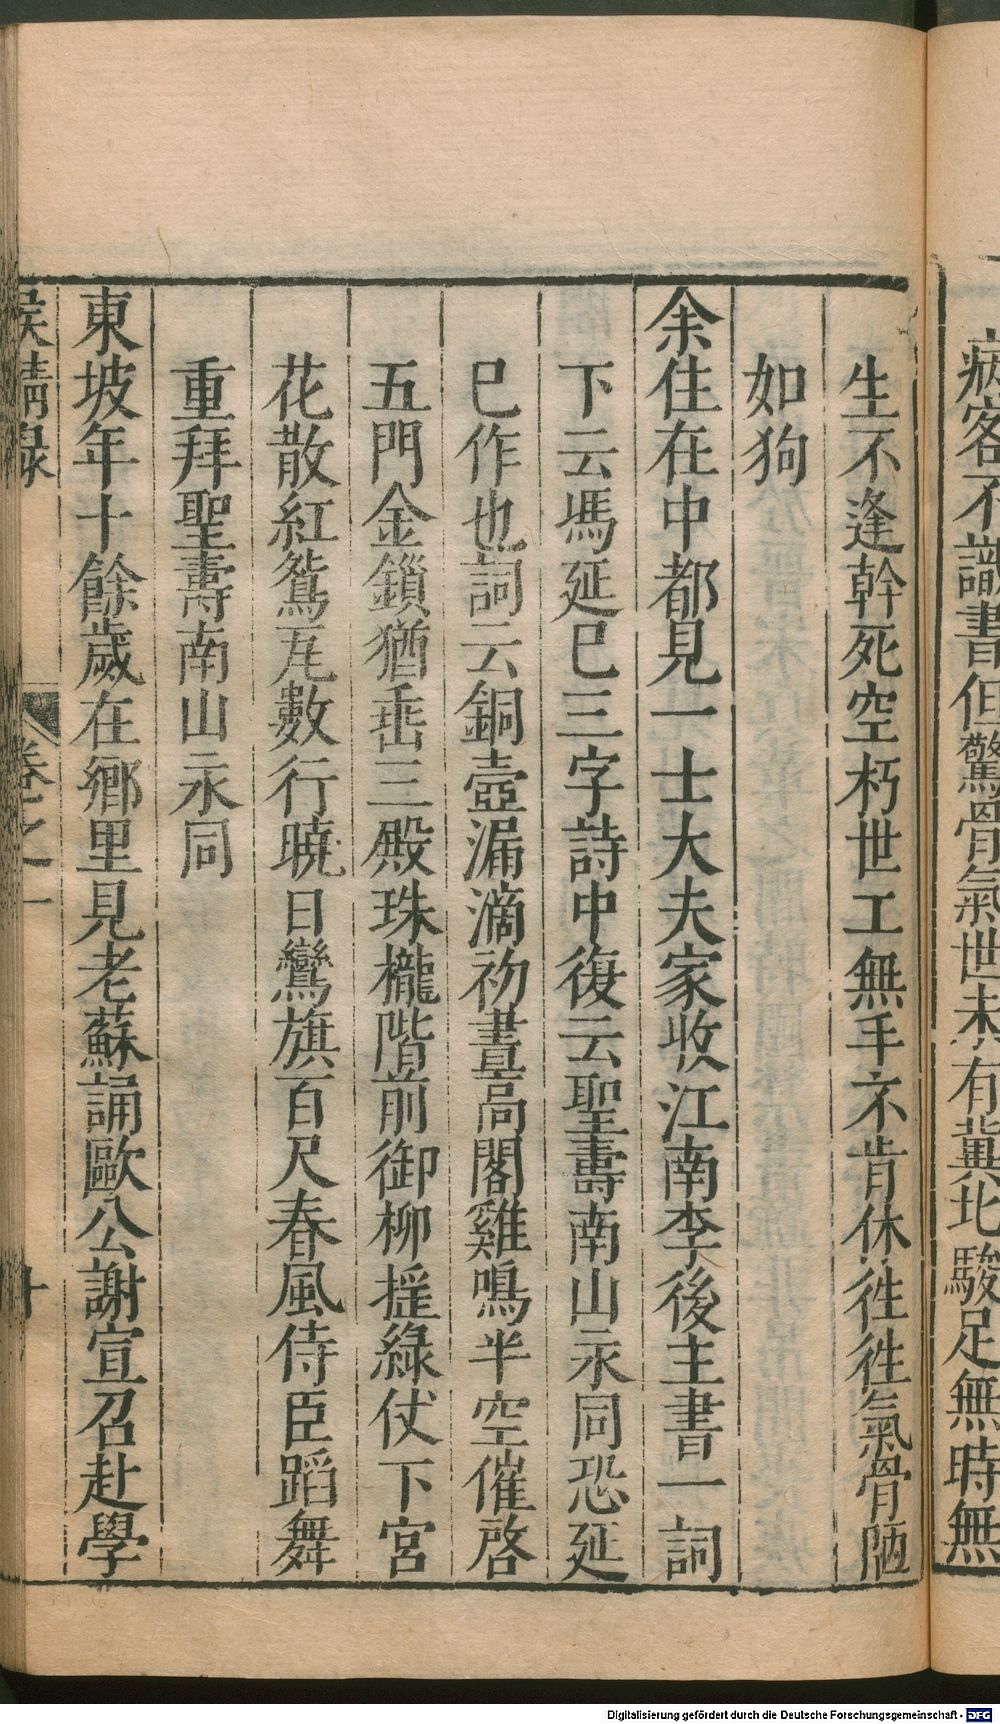 病客不識書但驚骨氣世未有冀北駿足無時無
生不逢幹死空朽世工無手不肯休徃徃氣骨陋
如狗
余住在中都見一士大夫家收江南李後主書一詞
下云馮延巳三字詩中復云聖壽南山永同恐延
巳作也詞云銅壺漏滴初晝高閣雞鳴半空催啓
五門金鎖猶垂三殿珠櫳階前御柳揺綠仗下宮
花散紅鴛瓦數行曉日鸞旗百尺春風侍臣蹈舞
重拜聖壽南山永同
東坡年十餘歲在鄉里見老蘇誦歐公謝宣召赴學
侯鯖錄
卷之一
十
Digitalisierung gefördert durch die Deutsche Forschungsgemeinschaft - DFG